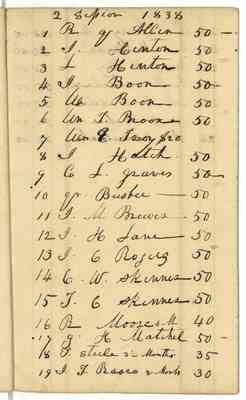 2 Session 1838
1 R g Allen 50 —
2 J. Hinton 50
3 L Hinton 50
4 J. Boon 50
5 Wm Boon 50
6 Wm J. Broom 50
7 Wm
8 J Hatch 50
9 C L graves 50
10 gr. Busbee — 50
11 J. M 50
12 J. H Lane 50
13 J. C Rogers 50
14 C. W. Skinner 50
15 T. C Skinner 50
16 R Moore 40
17 g. H Mitchel 50 —
18 F steele 2 Months 35
19 J. F 2 Months 30